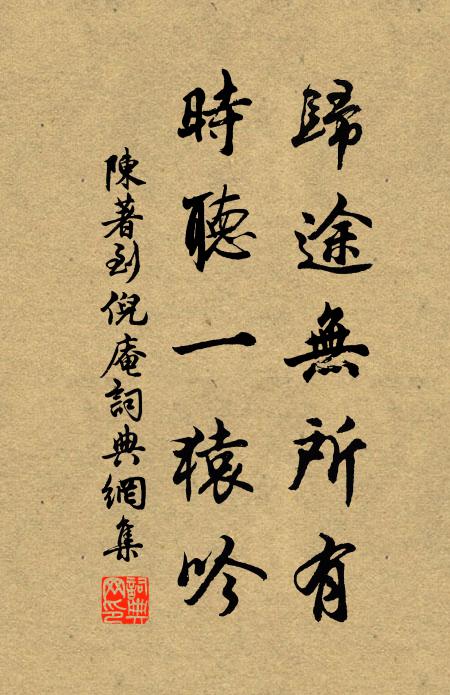 歸途無所有
時聽一猿吟
陳著到倪庵詞典網集
詞典网印